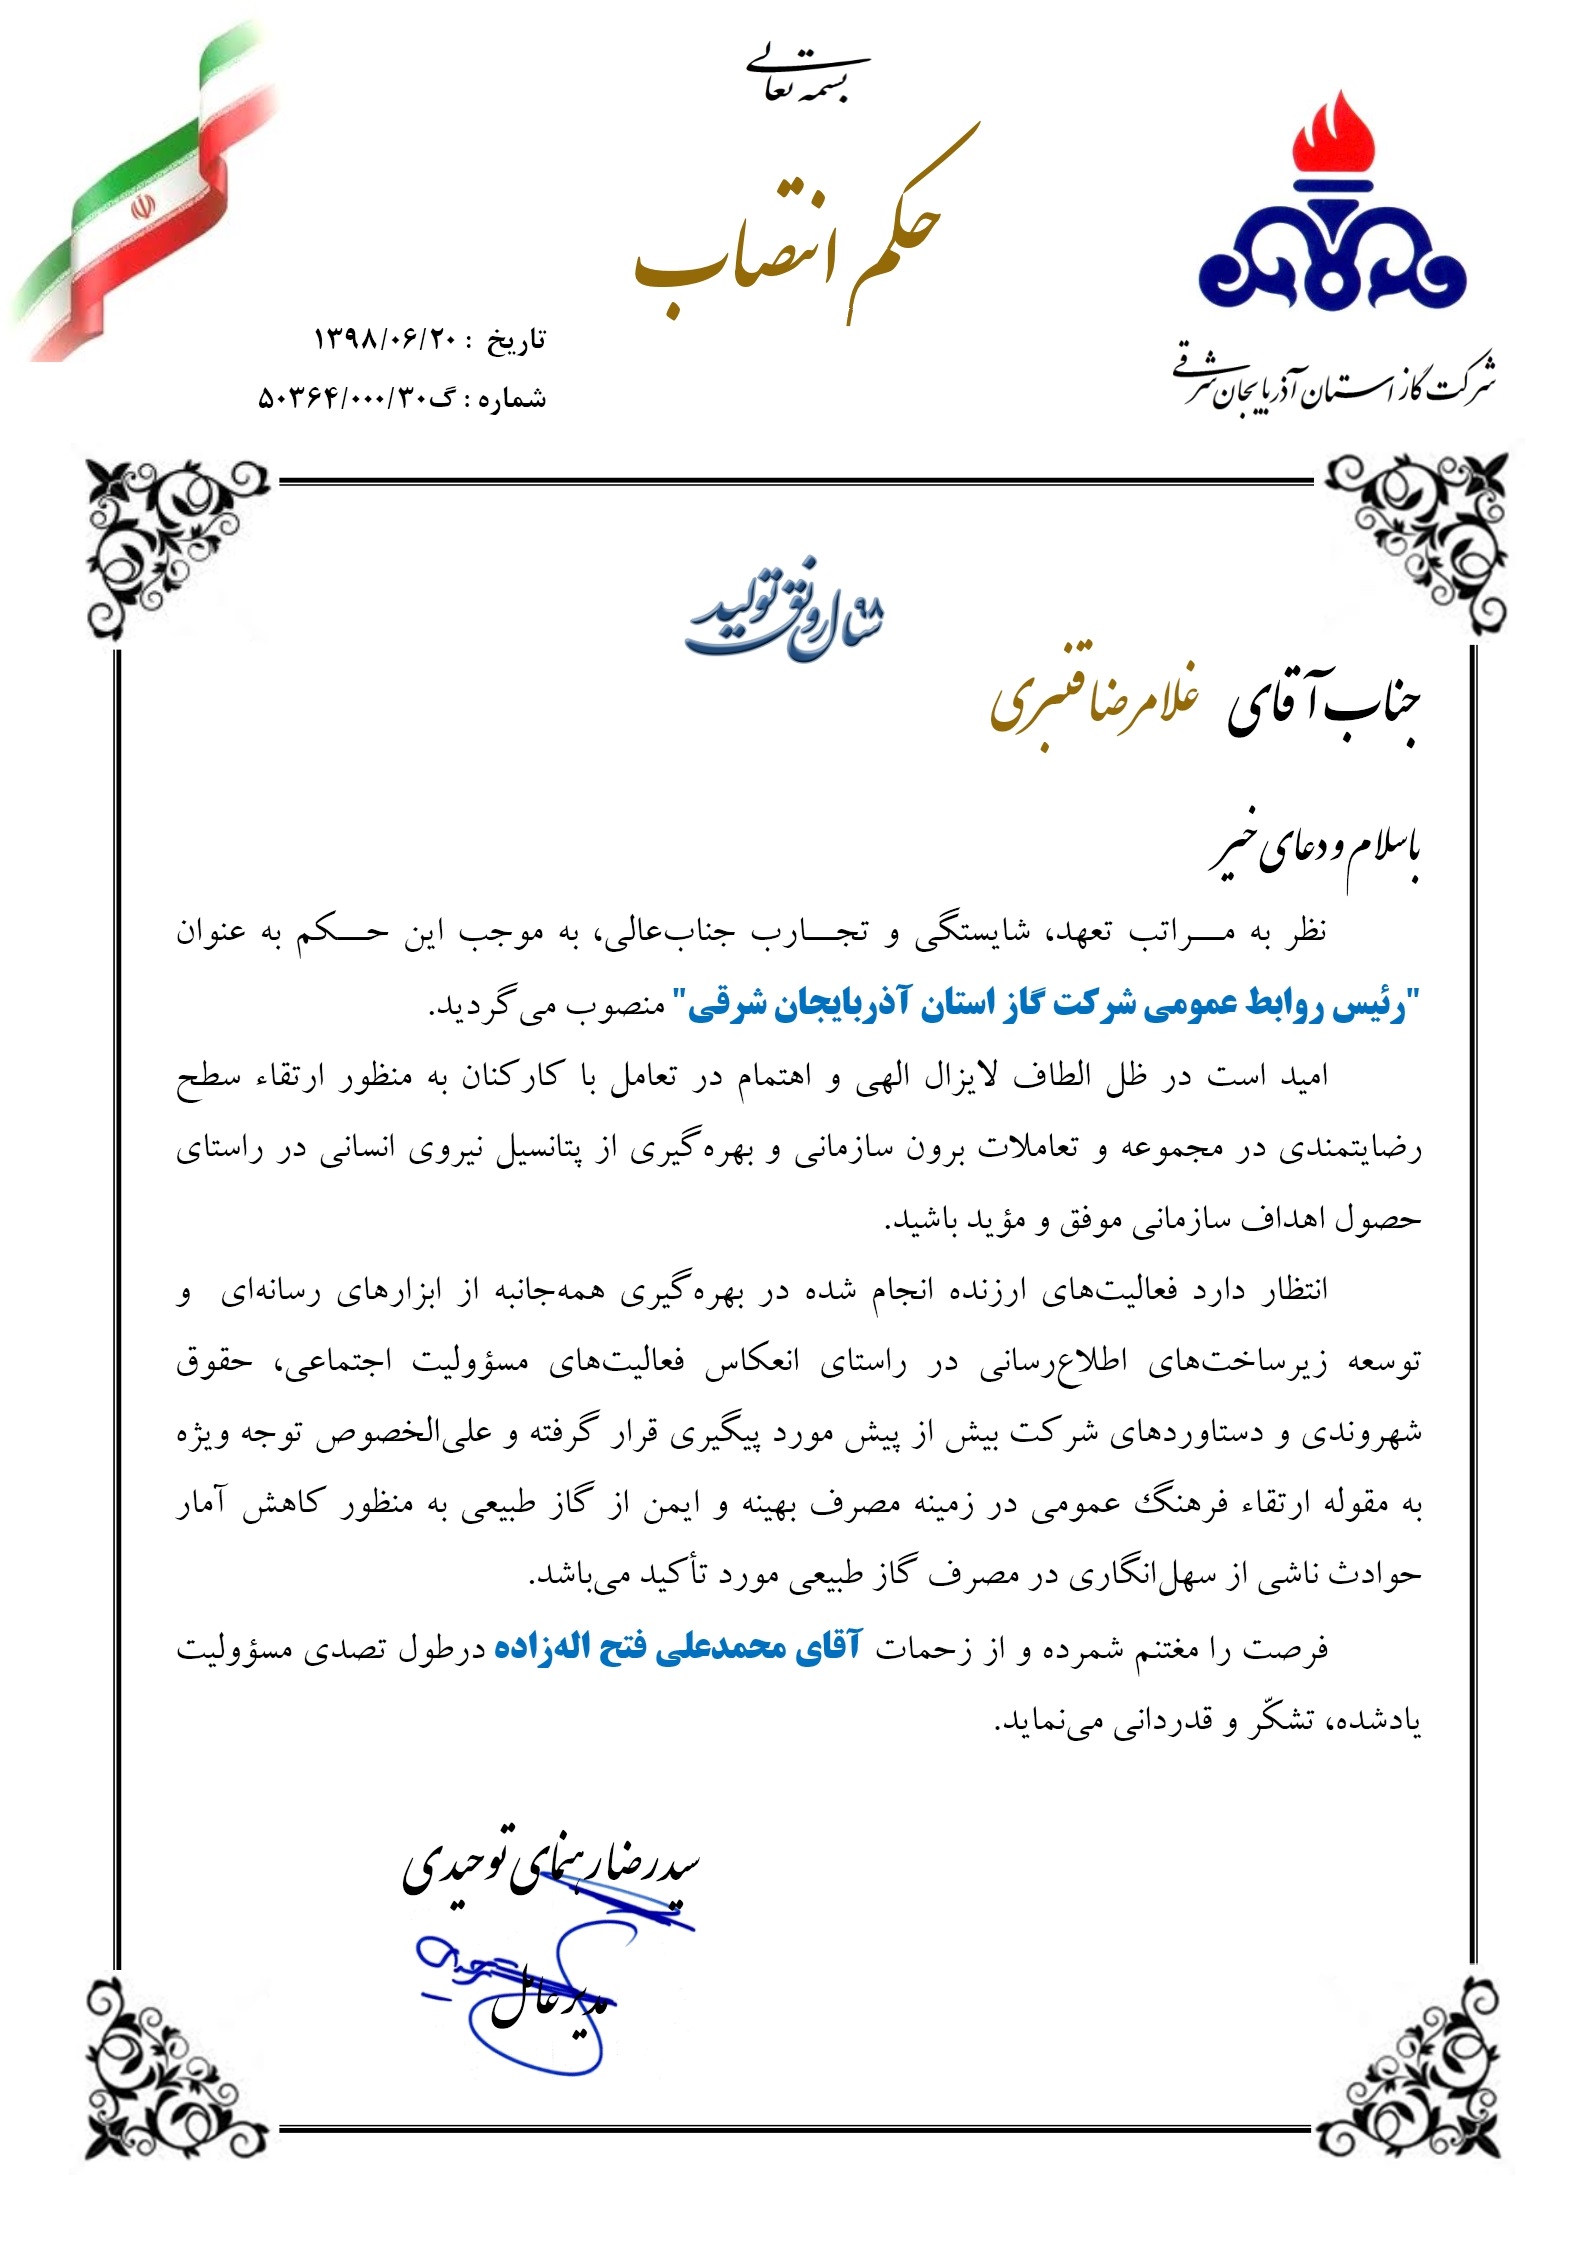 بسمه تعالی
حکم انتصاب
شرکت گاز استان آذربایجان شرقی
تاریخ : ۱۳۹۸/۰۶/۲۰
شماره : گ۵۰۳۶۴/۰۰۰/۳۰
سال ۹۸ رونق تولید
جناب آقای غلامرضا قنبری
باسلام و دعای خیر
نظر به مـــراتب تعهد، شایستگی و تجـــارب جناب‌عالی، به موجب این حـــکم به عنوان
"رئیس روابط عمومی شرکت گاز استان آذربایجان شرقی" منصوب می‌گردید.
امید است در ظل الطاف لایزال الهی و اهتمام در تعامل با کارکنان به منظور ارتقاء سطح
رضایتمندی در مجموعه و تعاملات برون سازمانی و بهره‌گیری از پتانسیل نیروی انسانی در راستای
حصول اهداف سازمانی موفق و مؤید باشید.
انتظار دارد فعالیت‌های ارزنده انجام شده در بهره‌گیری همه‌جانبه از ابزارهای رسانه‌ای و
توسعه زیرساخت‌های اطلاع‌رسانی در راستای انعکاس فعالیت‌های مسؤولیت اجتماعی، حقوق
شهروندی و دستاوردهای شرکت بیش از پیش مورد پیگیری قرار گرفته و علی‌الخصوص توجه ویژه
به مقوله ارتقاء فرهنگ عمومی در زمینه مصرف بهینه و ایمن از گاز طبیعی به منظور کاهش آمار
حوادث ناشی از سهل‌انگاری در مصرف گاز طبیعی مورد تأکید می‌باشد.
فرصت را مغتنم شمرده و از زحمات آقای محمدعلی فتح اله‌زاده درطول تصدی مسؤولیت
یادشده، تشکّر و قدردانی می‌نماید.
سیدرضا رهنمای توحیدی
مدیرعامل